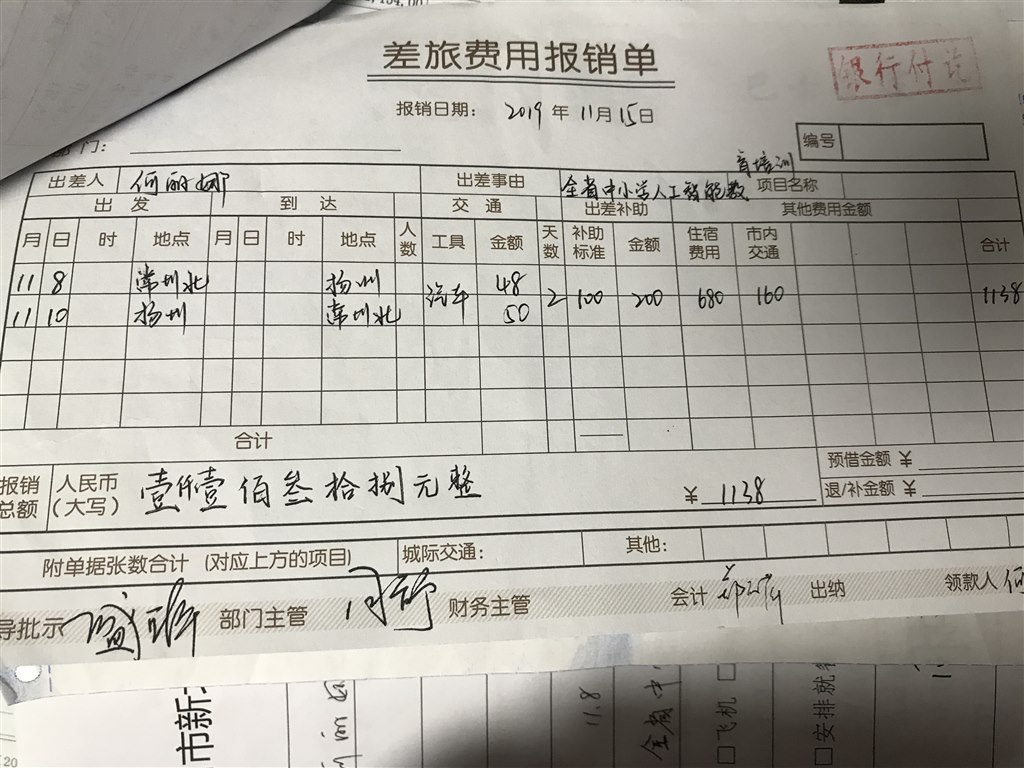 差旅费用报销单
银行付讫
报销日期： 2019 年 11 月 15 日
部门：
编号
出差人 何丽娜 出差事由 全省中小学人工智能教育培训 项目名称
出发 到达 交通 出差补助 其他费用金额
月 日 时 地点 月 日 时 地点 人数 工具 金额 天数 补助标准 金额 住宿费用 市内交通 合计
11 8 常州北 扬州 汽车 48 2 100 200 680 160 1138
11 10 扬州 常州北 50
合计
预借金额 ¥
报销总额 人民币（大写） 壹仟壹佰叁拾捌元整 ¥ 1138
退/补金额 ¥
附单据张数合计（对应上方的项目） 城际交通： 其他：
导批示 部门主管 财务主管 会计 出纳 领款人 何
市新
11.8
全省中
□飞机
□安排就